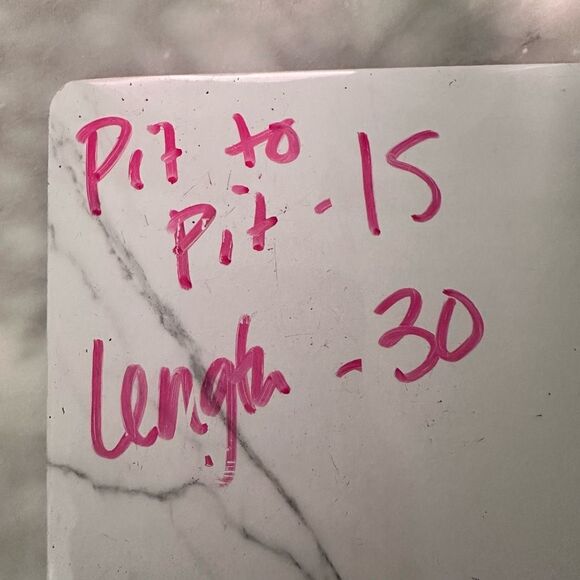 Pit to
Pit - 15
Length - 30